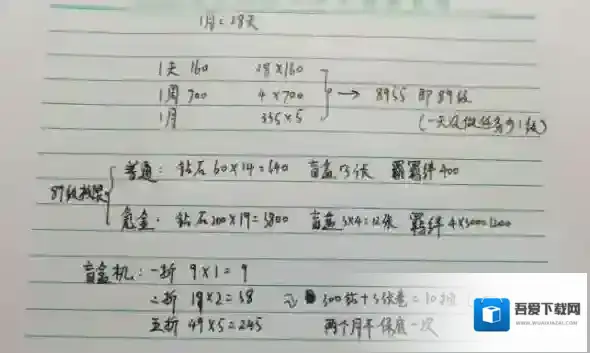 1月=28天
1天 160 28×160
1周 700 4×700 → 8955 即89级
1月 335×5 (一天没做任务少1级)
89级
普通: 钻石 60×14=640 盲盒 3张 羁绊400
氪金: 钻石200×19=3800 盲盒3×4=12张 羁绊4×300=1200
盲盒机: 一折 9×1=9
二折 19×2=38 300钻+3张卷=10抽
五折 49×5=245 两个月半保底一次
吾爱下载网
www.wuaixiazai.com